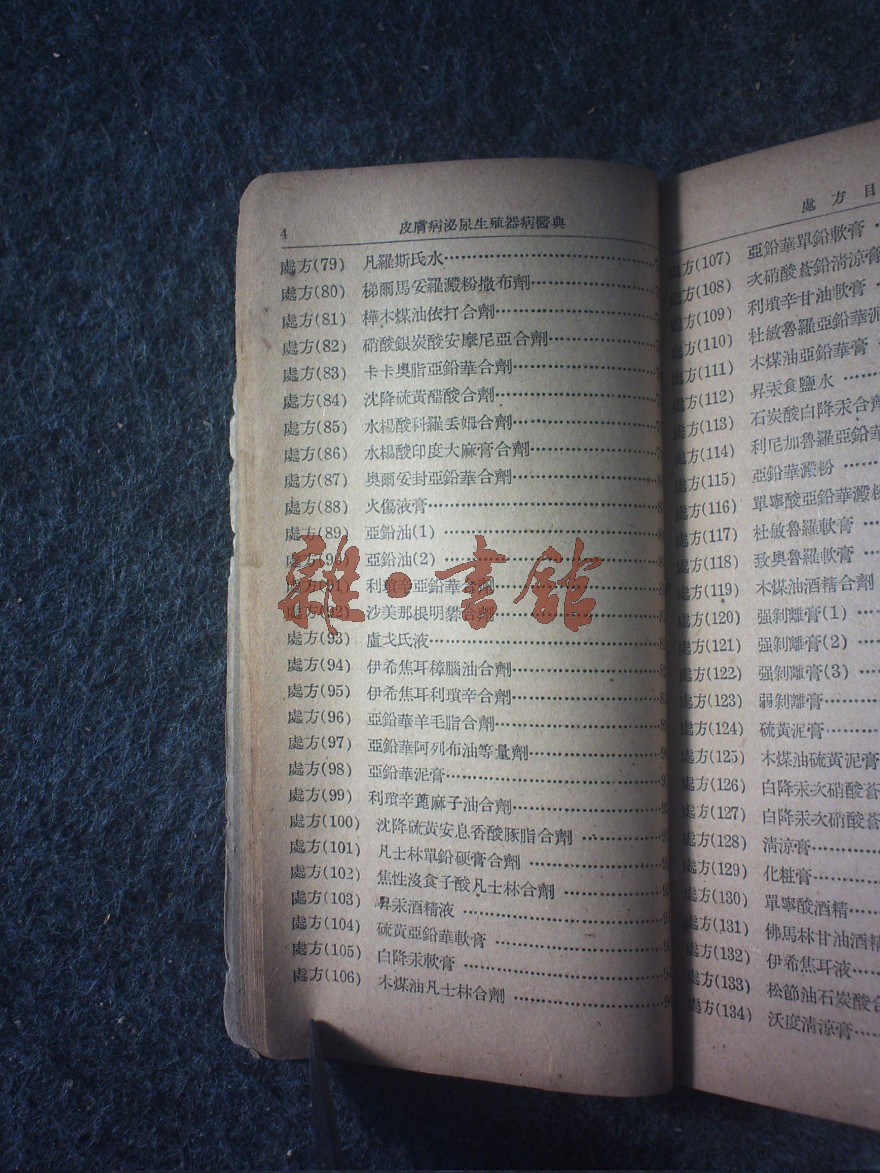 4 皮膚病泌尿生殖器病醫典
處方(79) 凡羅斯氏水
處方(80) 梯爾馬妥羅澱粉撒布劑
處方(81) 樺木煤油依打合劑
處方(82) 硝酸銀炭酸安摩尼亞合劑
處方(83) 卡卡奧脂亞鉛華合劑
處方(84) 沈降硫黃醋酸合劑
處方(85) 水楊酸科羅丟姆合劑
處方(86) 水楊酸印度大麻膏合劑
處方(87) 奧爾妥封亞鉛華合劑
處方(88) 火傷液膏
處方(89) 亞鉛油(1)
處方(90) 亞鉛油(2)
處方(91) 利瑣辛亞鉛華合劑
處方(92) 沙美那根明礬合劑
處方(93) 盧戈氏液
處方(94) 伊希焦耳樟腦油合劑
處方(95) 伊希焦耳利瑣辛合劑
處方(96) 亞鉛華羊毛脂合劑
處方(97) 亞鉛華阿列布油等量劑
處方(98) 亞鉛華泥膏
處方(99) 利瑣辛蓖麻子油合劑
處方(100) 沈降硫黃安息香酸豚脂合劑
處方(101) 凡士林單鉛硬膏合劑
處方(102) 焦性沒食子酸凡士林合劑
處方(103) 昇汞酒精液
處方(104) 硫黃亞鉛華軟膏
處方(105) 白降汞軟膏
處方(106) 木煤油凡士林合劑
處方目
處方(107) 亞鉛華單鉛軟膏
處方(108) 次硝酸蒼鉛清涼膏
處方(109) 利瑣辛甘油軟膏
處方(110) 杜敏魯羅亞鉛華泥
處方(111) 木煤油亞鉛華膏
處方(112) 昇汞食鹽水
處方(113) 石炭酸白降汞合劑
處方(114) 利尼加魯羅亞鉛華
處方(115) 亞鉛華澱粉
處方(116) 單寧酸亞鉛華澱粉
處方(117) 杜敏魯羅軟膏
處方(118) 致奧魯羅軟膏
處方(119) 木煤油酒精合劑
處方(120) 强剝離膏(1)
處方(121) 强剝離膏(2)
處方(122) 强剝離膏(3)
處方(123) 弱剝離膏
處方(124) 硫黃泥膏
處方(125) 木煤油硫黃泥膏
處方(126) 白降汞次硝酸蒼
處方(127) 白降汞次硝酸蒼
處方(128) 清涼膏
處方(129) 化粧膏
處方(130) 單寧酸酒精
處方(131) 佛馬林甘油酒精
處方(132) 伊希焦耳液
處方(133) 松節油石炭酸合
處方(134) 沃度清涼膏
雜·書館